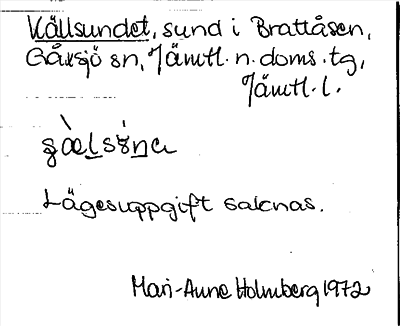 Källsundet, sund i Brattåsen,
Gåxsjö sn, Jämtl. n. doms. tg,
Jämtl. l.
Lägesuppgift saknas.
Mari-Anne Holmberg 1972